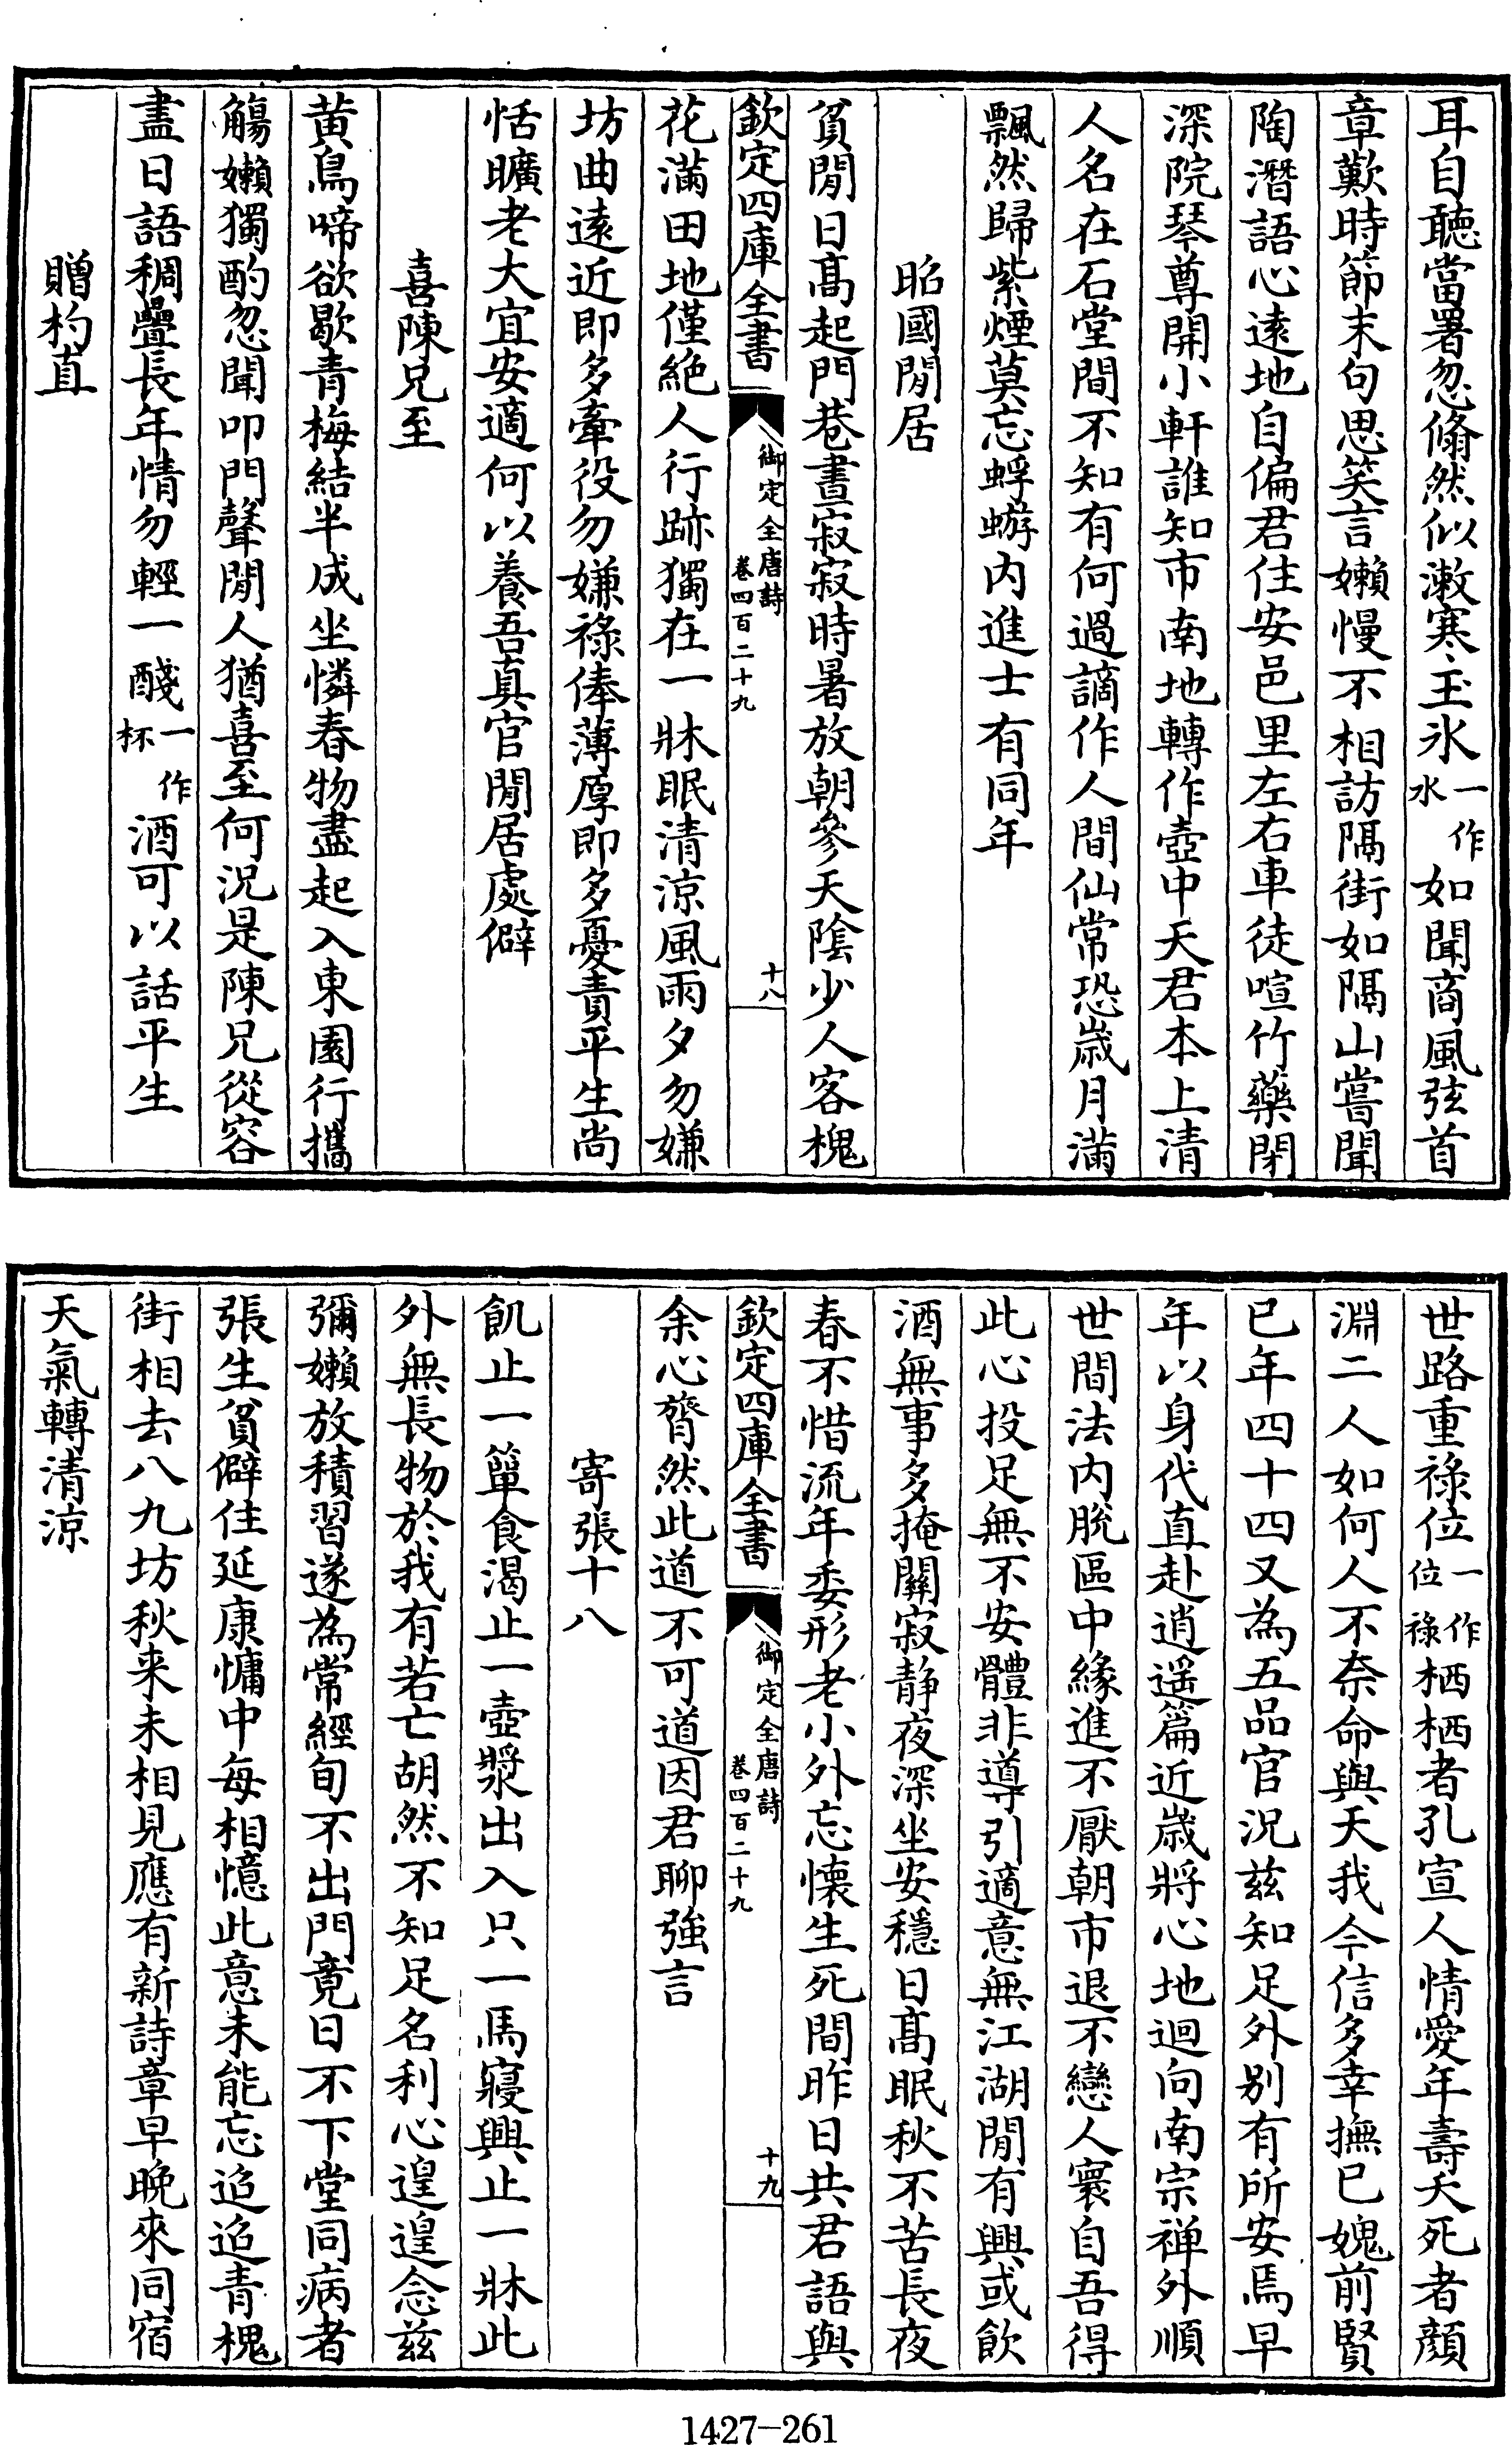 耳自聽當署忽翛然似漱寒玉氷一作水如聞商風弦首
章歎時節末句思笑言嬾慢不相訪隔街如隔山嘗聞
陶潛語心遠地自偏君住安邑里左右車徒喧竹藥閉
深院琴尊開小軒誰知市南地轉作壺中天君本上清
人名在石堂間不知有何過謫作人間仙常恐歲月滿
飄然歸紫煙莫忘蜉蝣内進士有同年
昭國閒居
貧閒日髙起門巷晝寂寂時暑放朝參天隂少人客槐
欽定四庫全書
御定全唐詩
卷四百二十九
十八
花滿田地僅絶人行跡獨在一牀眠清涼風雨夕勿嫌
坊曲逺近即多牽役勿嫌祿俸薄厚即多憂責平生尚
恬曠老大宜安適何以養吾真官閒居處僻
喜陳兄至
黄鳥啼欲歇青梅結半成坐憐春物盡起入東園行攜
觴嬾獨酌忽聞叩門聲閒人猶喜至何況是陳兄從容
盡日語稠疊長年情勿輕一醆一作杯酒可以話平生
贈杓直
世路重祿位一作位祿栖栖者孔宣人情愛年壽夭死者顔
淵二人如何人不奈命與天我今信多幸撫已媿前賢
已年四十四又為五品官況兹知足外别有所安焉早
年以身代直赴逍遥篇近歲將心地迴向南宗禅外順
世間法内脫區中緣進不厭朝市退不戀人寰自吾得
此心投足無不安體非導引適意無江湖閒有興或飲
酒無事多掩關寂静夜深坐安穩日髙眠秋不苦長夜
春不惜流年委形老小外忘懷生死間昨日共君語與
欽定四庫全書
御定全唐詩
卷四百二十九
十九
余心膂然此道不可道因君聊強言
寄張十八
飢止一簞食渴止一壺漿出入只一馬寢興止一牀此
外無長物於我有若亡胡然不知足名利心遑遑念兹
彌嬾放積習遂為常經旬不出門竟日不下堂同病者
張生貧僻住延康慵中每相憶此意未能忘迢迢青槐
街相去八九坊秋来未相見應有新詩章早晚來同宿
天氣轉清涼
1427-261